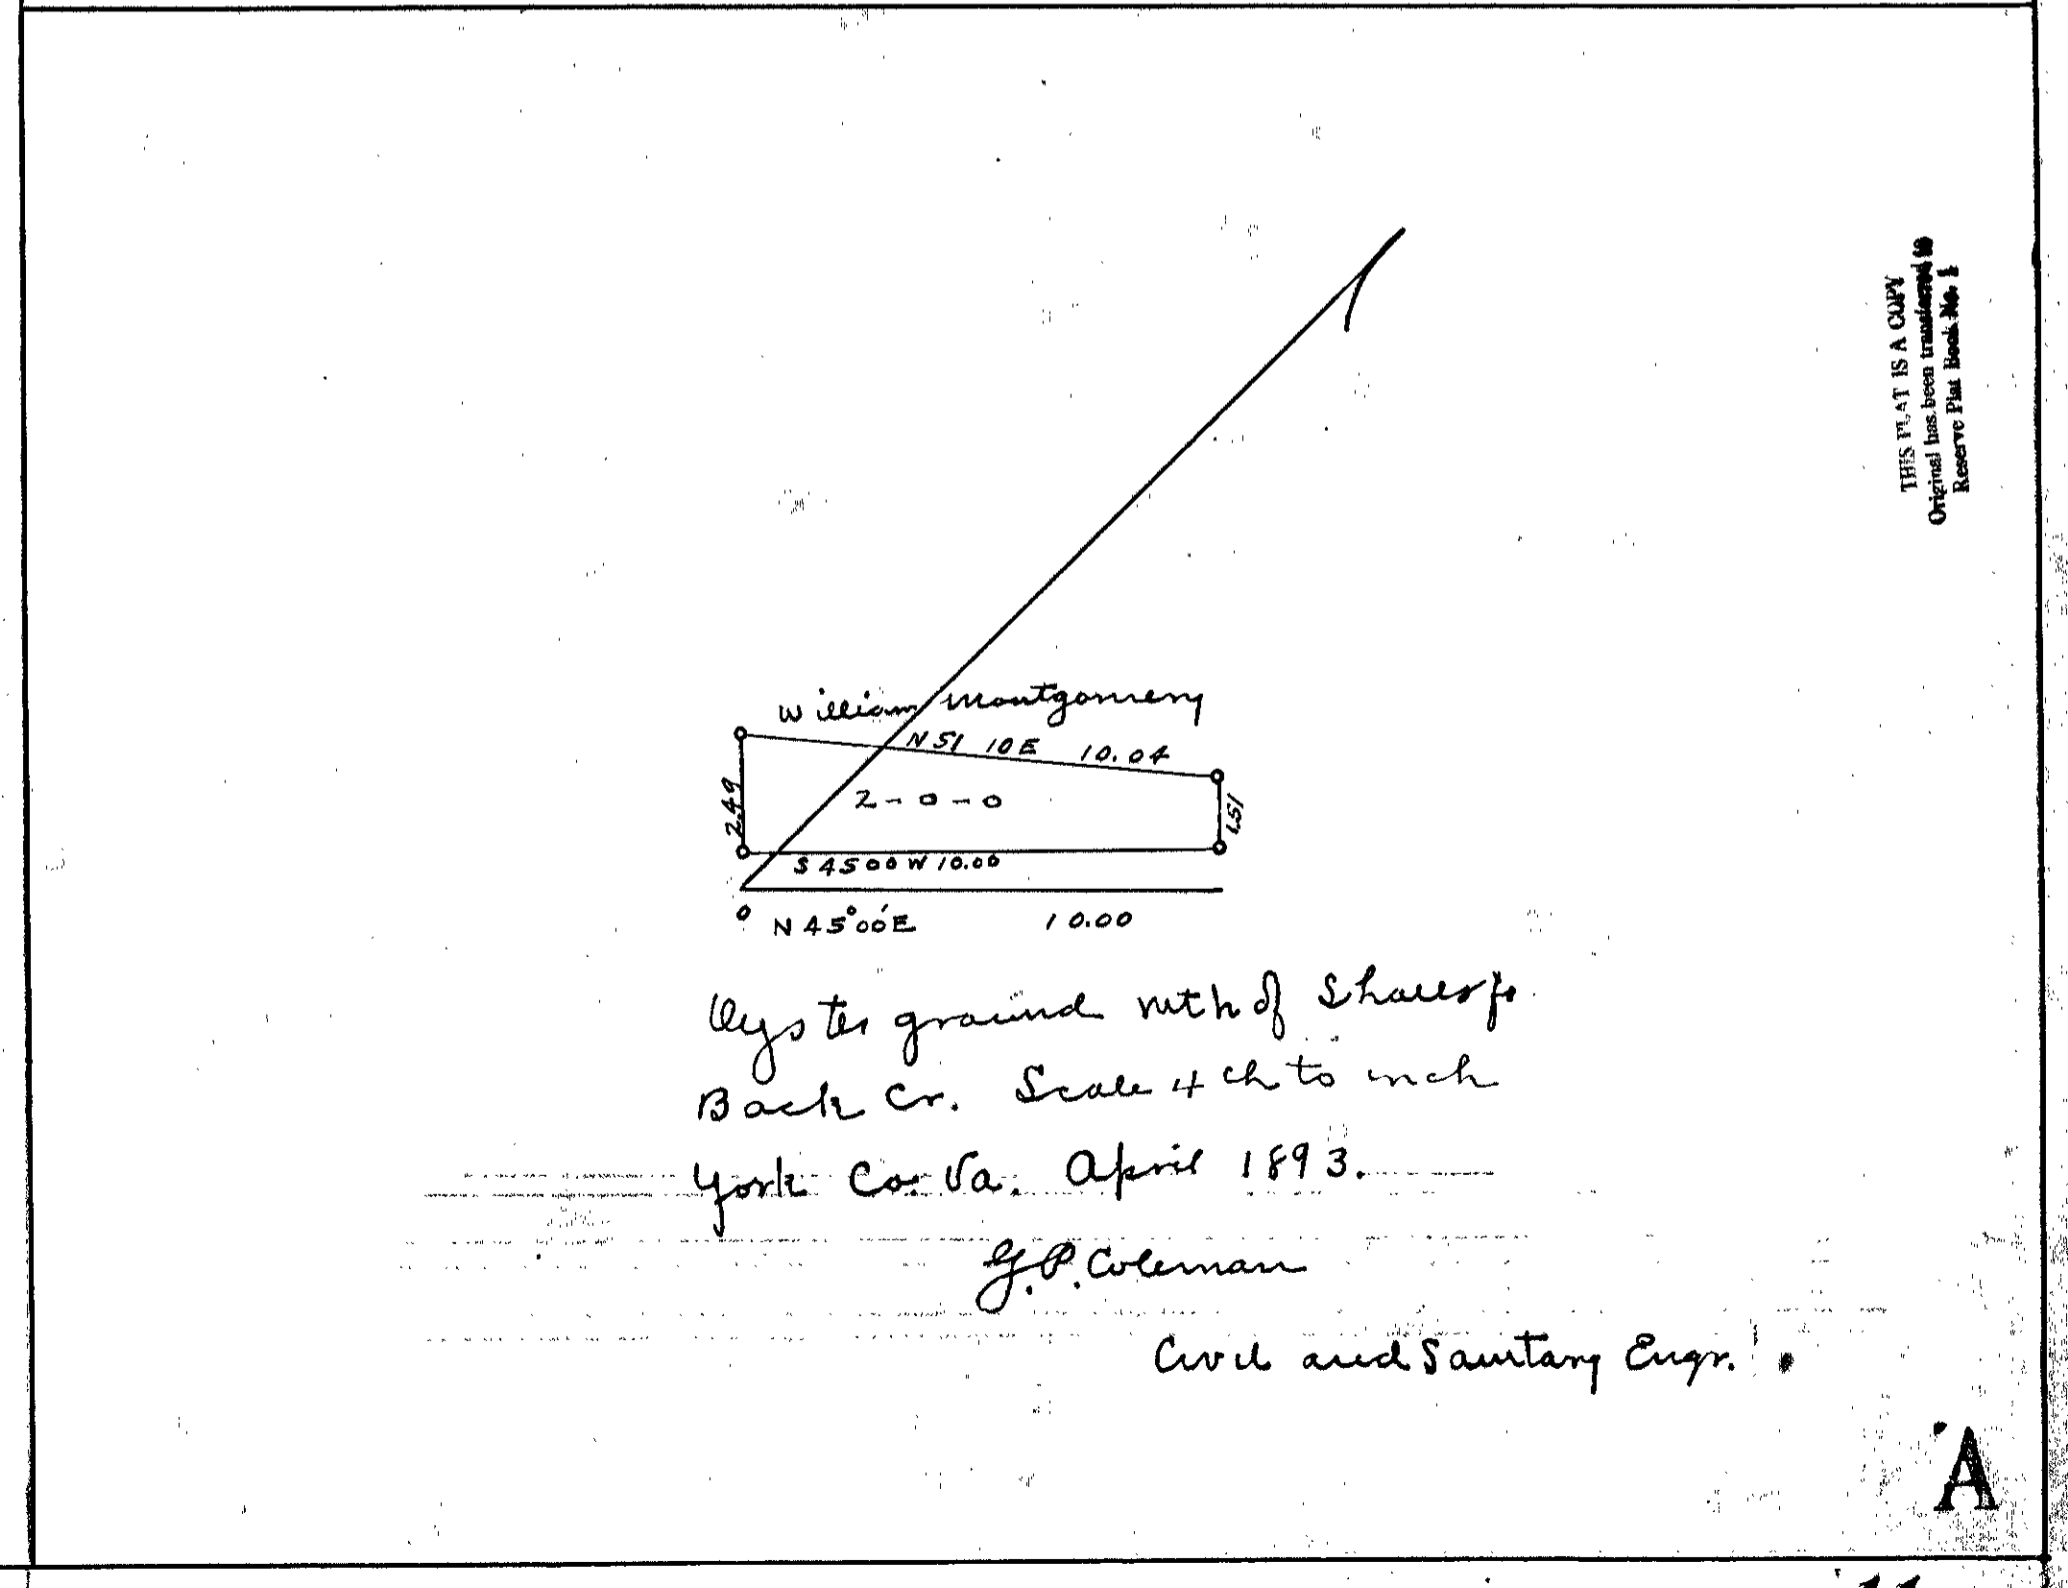 THIS PLAT IS A COPY
Original has been transferred to
Reserve Plat Book No. 1
William Montgomery
N 51 10 E 10.04
2.49
2 - 0 - 0
1.51
S 45 00 W 10.00
0 N 45° 00' E 10.00
Oyster ground mth of
Back Cr. Scale 4 ch to inch
York Co. Va. April 1893.
G. P. Coleman
Civil and Sanitary Engr.
A